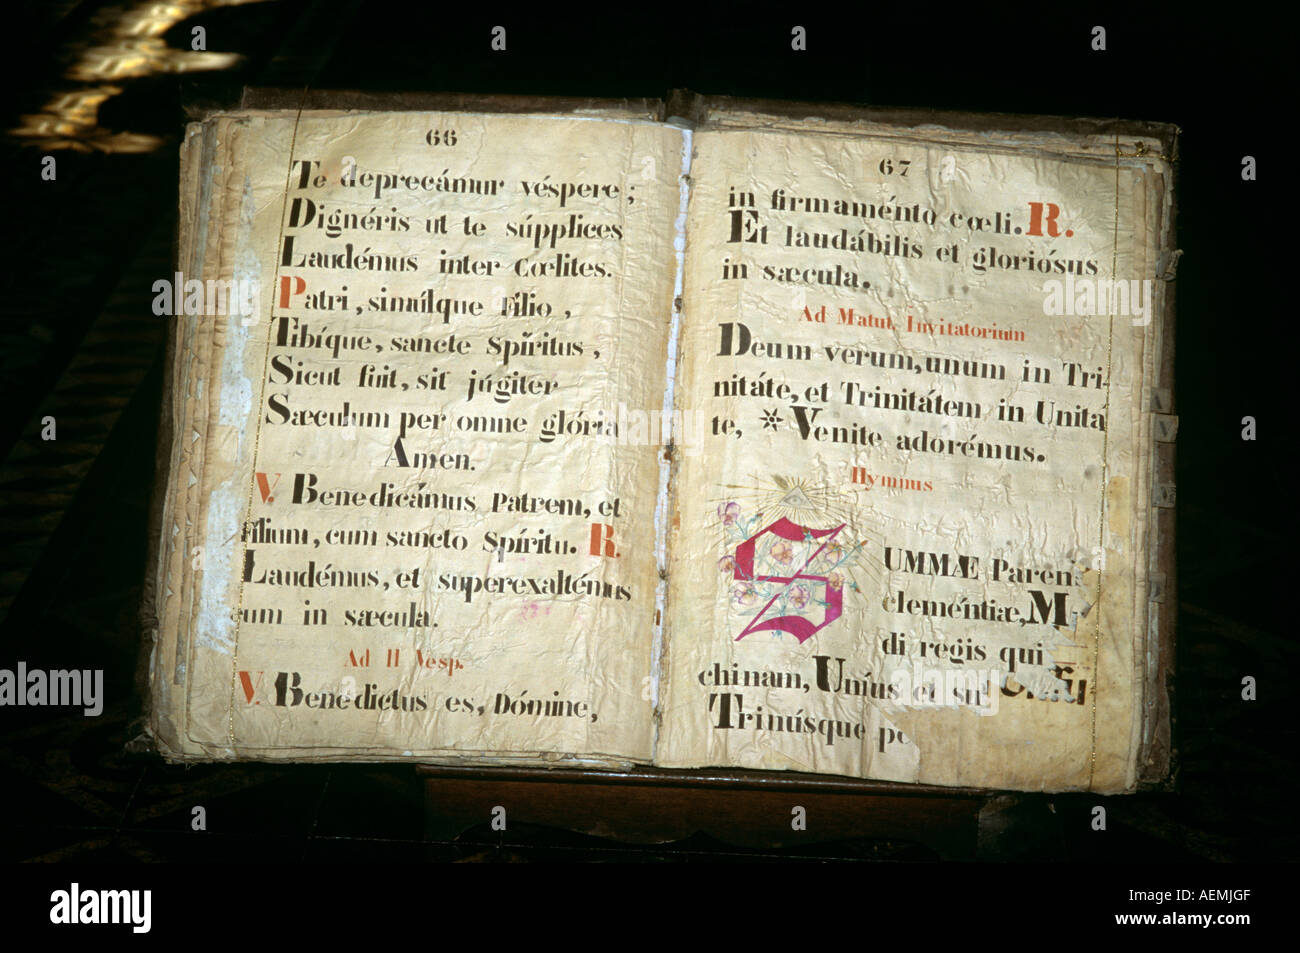 66
Te deprecámur véspere;
Dignéris ut te súpplices
Laudémus inter Cœlites.
Patri, simúlque Filio,
Tibíque, sancte Spíritus,
Sicut fuit, sit júgiter
Sæculum per omne glória
Amen.
V. Benedicámus Patrem, et
Filium, cum sancto Spíritu. R.
Laudémus, et superexaltémus
eum in sæcula.
Ad II Vesp.
V. Benedictus es, Dómine,
67
in firmaménto cœli. R.
Et laudábilis et gloriósus
in sæcula.
Ad Matut. Invitatorium
Deum verum, unum in Tri-
nitáte, et Trinitátem in Unita
te, * Venite adorémus.
Hymnus
SUMMÆ Paren
clementiæ, M
di regis qui
chinam, Uníus et su
Trinúsque pe
alamy
Image ID: AEMJGF
www.alamy.com